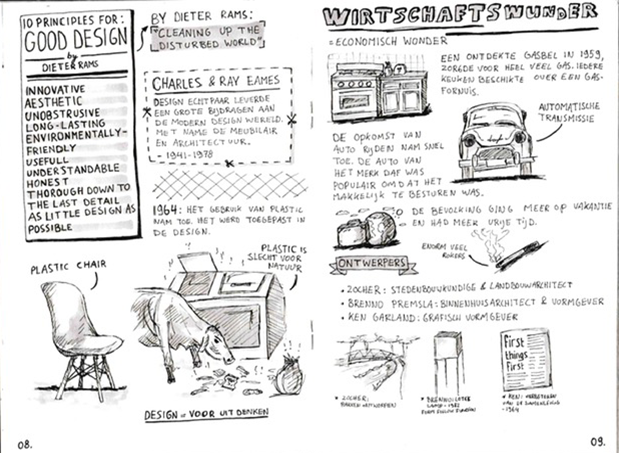 10 PRINCIPLES FOR:
GOOD DESIGN
by
DIETER RAMS
INNOVATIVE
AESTHETIC
UNOBSTRUSIVE
LONG-LASTING
ENVIRONMENTALLY-
FRIENDLY
USEFULL
UNDERSTANDABLE
HONEST
THOROUGH DOWN TO
THE LAST DETAIL
AS LITTLE DESIGN AS
POSSIBLE
BY DIETER RAMS:
"CLEANING UP THE
DISTURBED WORLD"
CHARLES & RAY EAMES
DESIGN ECHTPAAR LEVERDE
EEN GROTE BIJDRAGEN AAN
DE MODERN DESIGN WERELD.
MET NAME DE MEUBILAIR
EN ARCHITECTUUR.
- 1941-1978
1964: HET GEBRUIK VAN PLASTIC
NAM TOE. HET WERD TOEGEPAST IN
DE DESIGN.
PLASTIC CHAIR
PLASTIC IS
SLECHT VOOR
NATUUR
DESIGN = VOOR UIT DENKEN
08.
WIRTSCHAFTSWUNDER
= ECONOMISCH WONDER
EEN ONTDEKTE GASBEL IN 1959,
ZORGDE VOOR HEEL VEEL GAS. IEDERE
KEUKEN BESCHIKTE OVER EEN GAS-
FORNUIS.
AUTOMATISCHE
TRANSMISSIE
DE OPKOMST VAN
AUTO RIJDEN NAM SNEL
TOE. DE AUTO VAN
HET MERK DAF WAS
POPULAIR OMDAT HET
MAKKELIJK TE BESTUREN WAS.
DE BEVOLKING GING MEER OP VAKANTIE
EN HAD MEER VRIJE TIJD.
ENORM VEEL
ROKERS
ONTWERPERS
• ZOCHER: STEDENBOUWKUNDIGE & LANDBOUWARCHITECT
• BRENNO PREMSLA: BINNENHUISARCHITECT & VORMGEVER
• KEN GARLAND: GRAFISCH VORMGEVER
First
things
First
• ZOCHER:
• BRENNO: LOTEK
LAMP - 1982
• KEN:
- 1964
09.